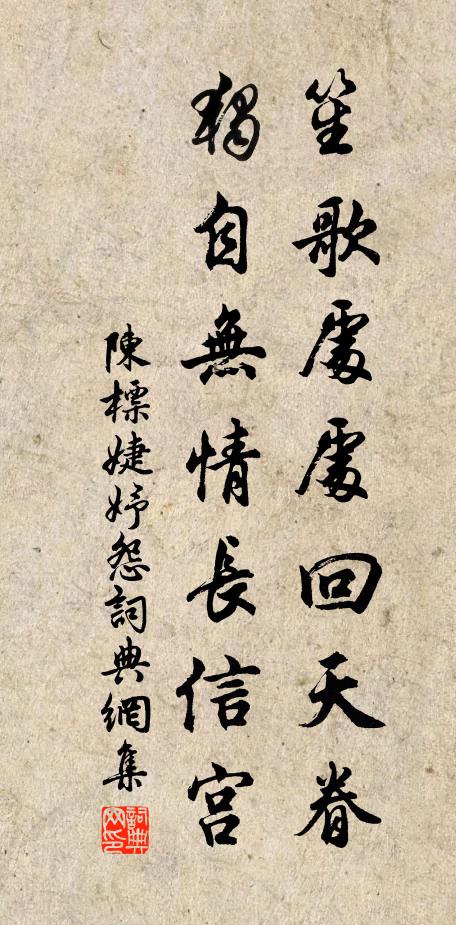 笙歌處處回天眷
獨自無情長信宮
陳標婕妤怨詞典網集
詞典網印